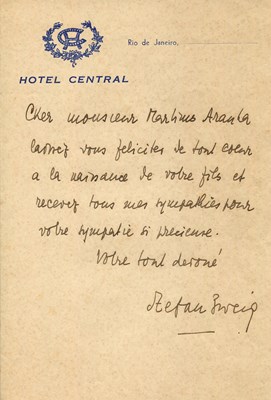 Rio de Janeiro,
HOTEL CENTRAL
Cher monsieur Martins Aranha
laissez vous feliciter de tout coeur
a la naissance de votre fils et
recevez tous mes sympathies pour
votre sympatie si precieuse.
Votre tout devoué
Stefan Zweig